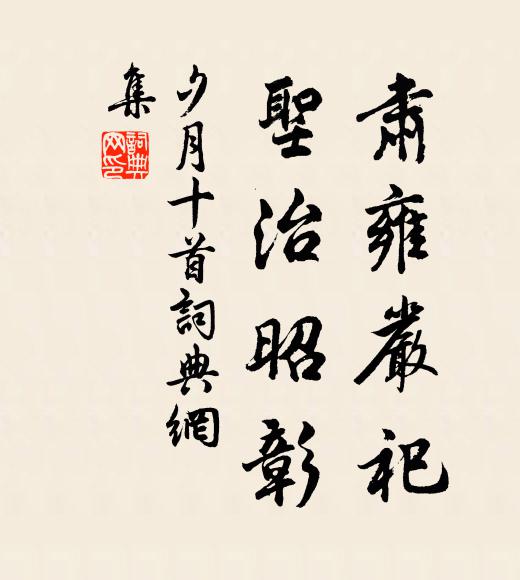 肅雍嚴祀
聖治昭彰
夕月十首詞典網
集
詞典网印